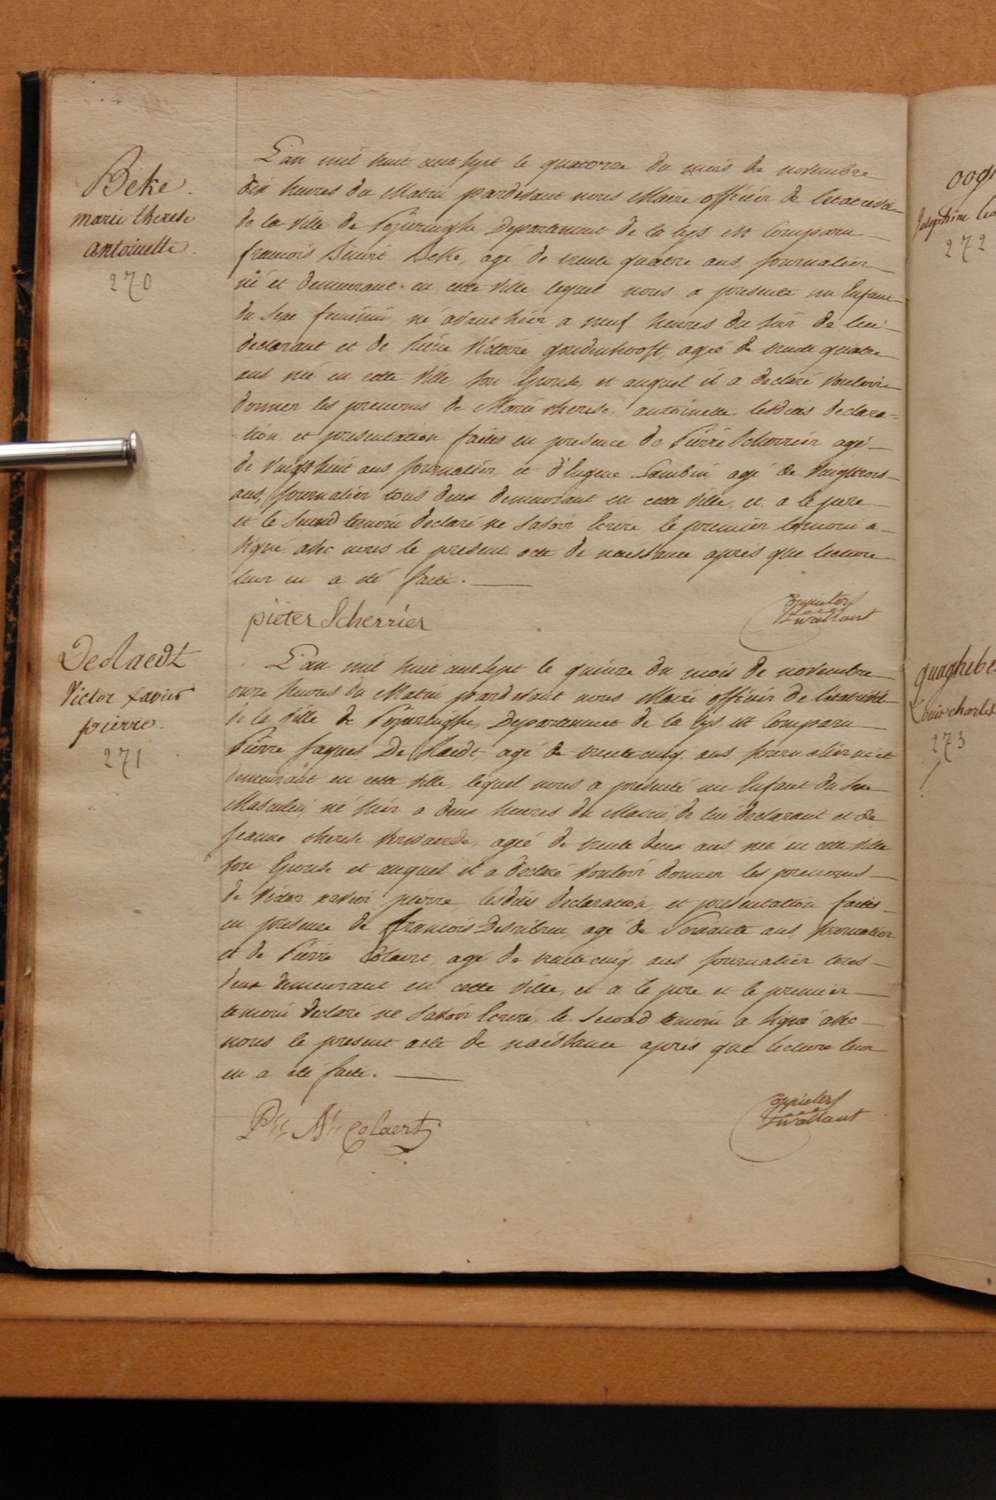 Beke.
marie therese
antoinette.
270
L'an mil huit cent sept le quatorze du mois de novembre
dix heures du Matin pardevant nous Maire officier de l'etat civil
de la ville de Poperinghe Departement de la Lys est Comparu
francois Beke, agé de trente quatre ans journalier
né et demeurant en cette ville lequel nous a presenté un Enfant
du sexe feminin, né avant hier a neuf heures du soir de lui
declarant et de Victoire agée de trente quatre
ans née en cette ville son Epouse, et auquel il a declaré Vouloir
donner les prenoms de Marie therese antoinette lesdites declara=
tion et presentation faites en presence de Pierre Scherrier agé
de Vingt huit ans journalier et d'Eugene agé de Vingt trois
ans, journalier tous deux demeurant en cette ville, et a le pere
et le second temoin declaré ne savoir Ecrire le premier temoin a
signé avec nous le present acte de naissance après que lecture
leur en a été faite.
pieter Scherrier
DeRaedt
Victor xavier
pierre.
271
L'an mil huit cent sept le quinze du mois de novembre
onze heures du Matin pardevant nous Maire officier de l'etat civil
de la Ville de Poperinghe Departement de la Lys est Comparu
Pierre Jaques De Raedt agé de trente cinq ans journalier né et
demeurant en cette ville, lequel nous a présenté un Enfant du sexe
Masculin, né hier a deux heures du Matin, de lui declarant et de
Jeanne therese agée de trente deux ans née en cette ville
son Epouse et auquel il a declaré Vouloir donner les prenoms
de Victor xavier pierre, lesdites declaration et presentation faites
en presence de francois agé de ans journalier
et de Pierre Colaert, agé de trente cinq ans journalier tous
deux demeurant en cette Ville, et a le pere et le premier
temoin declaré ne savoir Ecrire, le second temoin a signé avec
nous le present acte de naissance après que lecture leur
en a été faite.
Colaert
Josephine
272
quaghebe
Louis charles
273